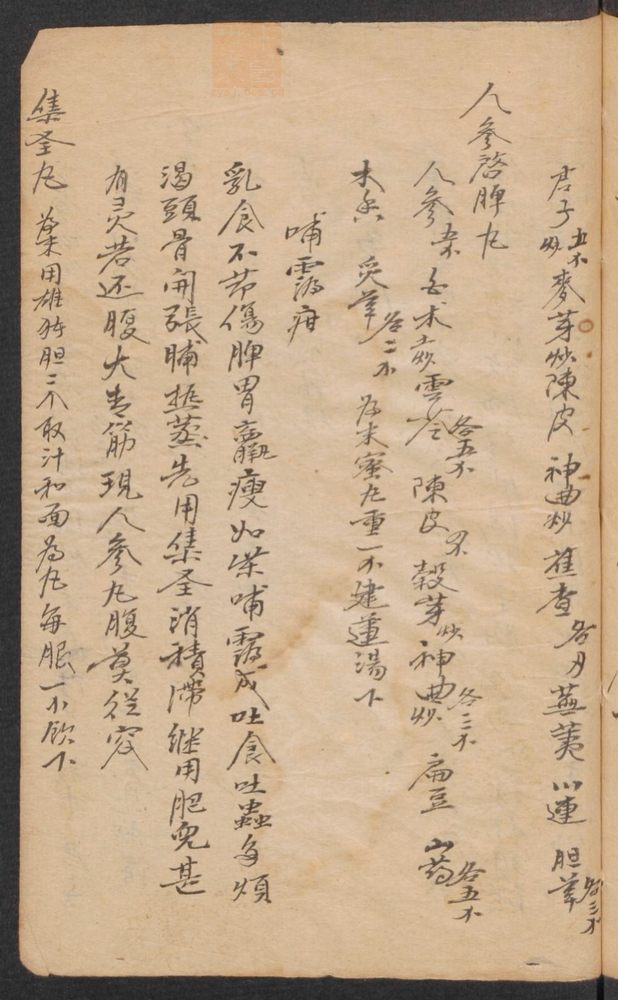 君子五不炒麥芽炒陳皮 神曲炒 查各刀蕪荑 川連 胆草各三不
人參啓脾丸
人參 白术 雲苓各五不 陳皮 穀芽炒神曲炒各三不 扁豆 山药各五不
木香 炙草各二不 為末蜜丸重一不建蓮湯下
哺露疳
乳食不节傷脾胃羸瘦如柴哺露成吐食吐蟲多煩
渴頭骨開張晡熱蒸先用集圣消積滯継用肥兒甚
有灵若还腹大青筋現人參丸腹莫從容
集圣丸 藥末用雄猪胆二个取汁和面為丸每服一不飲下